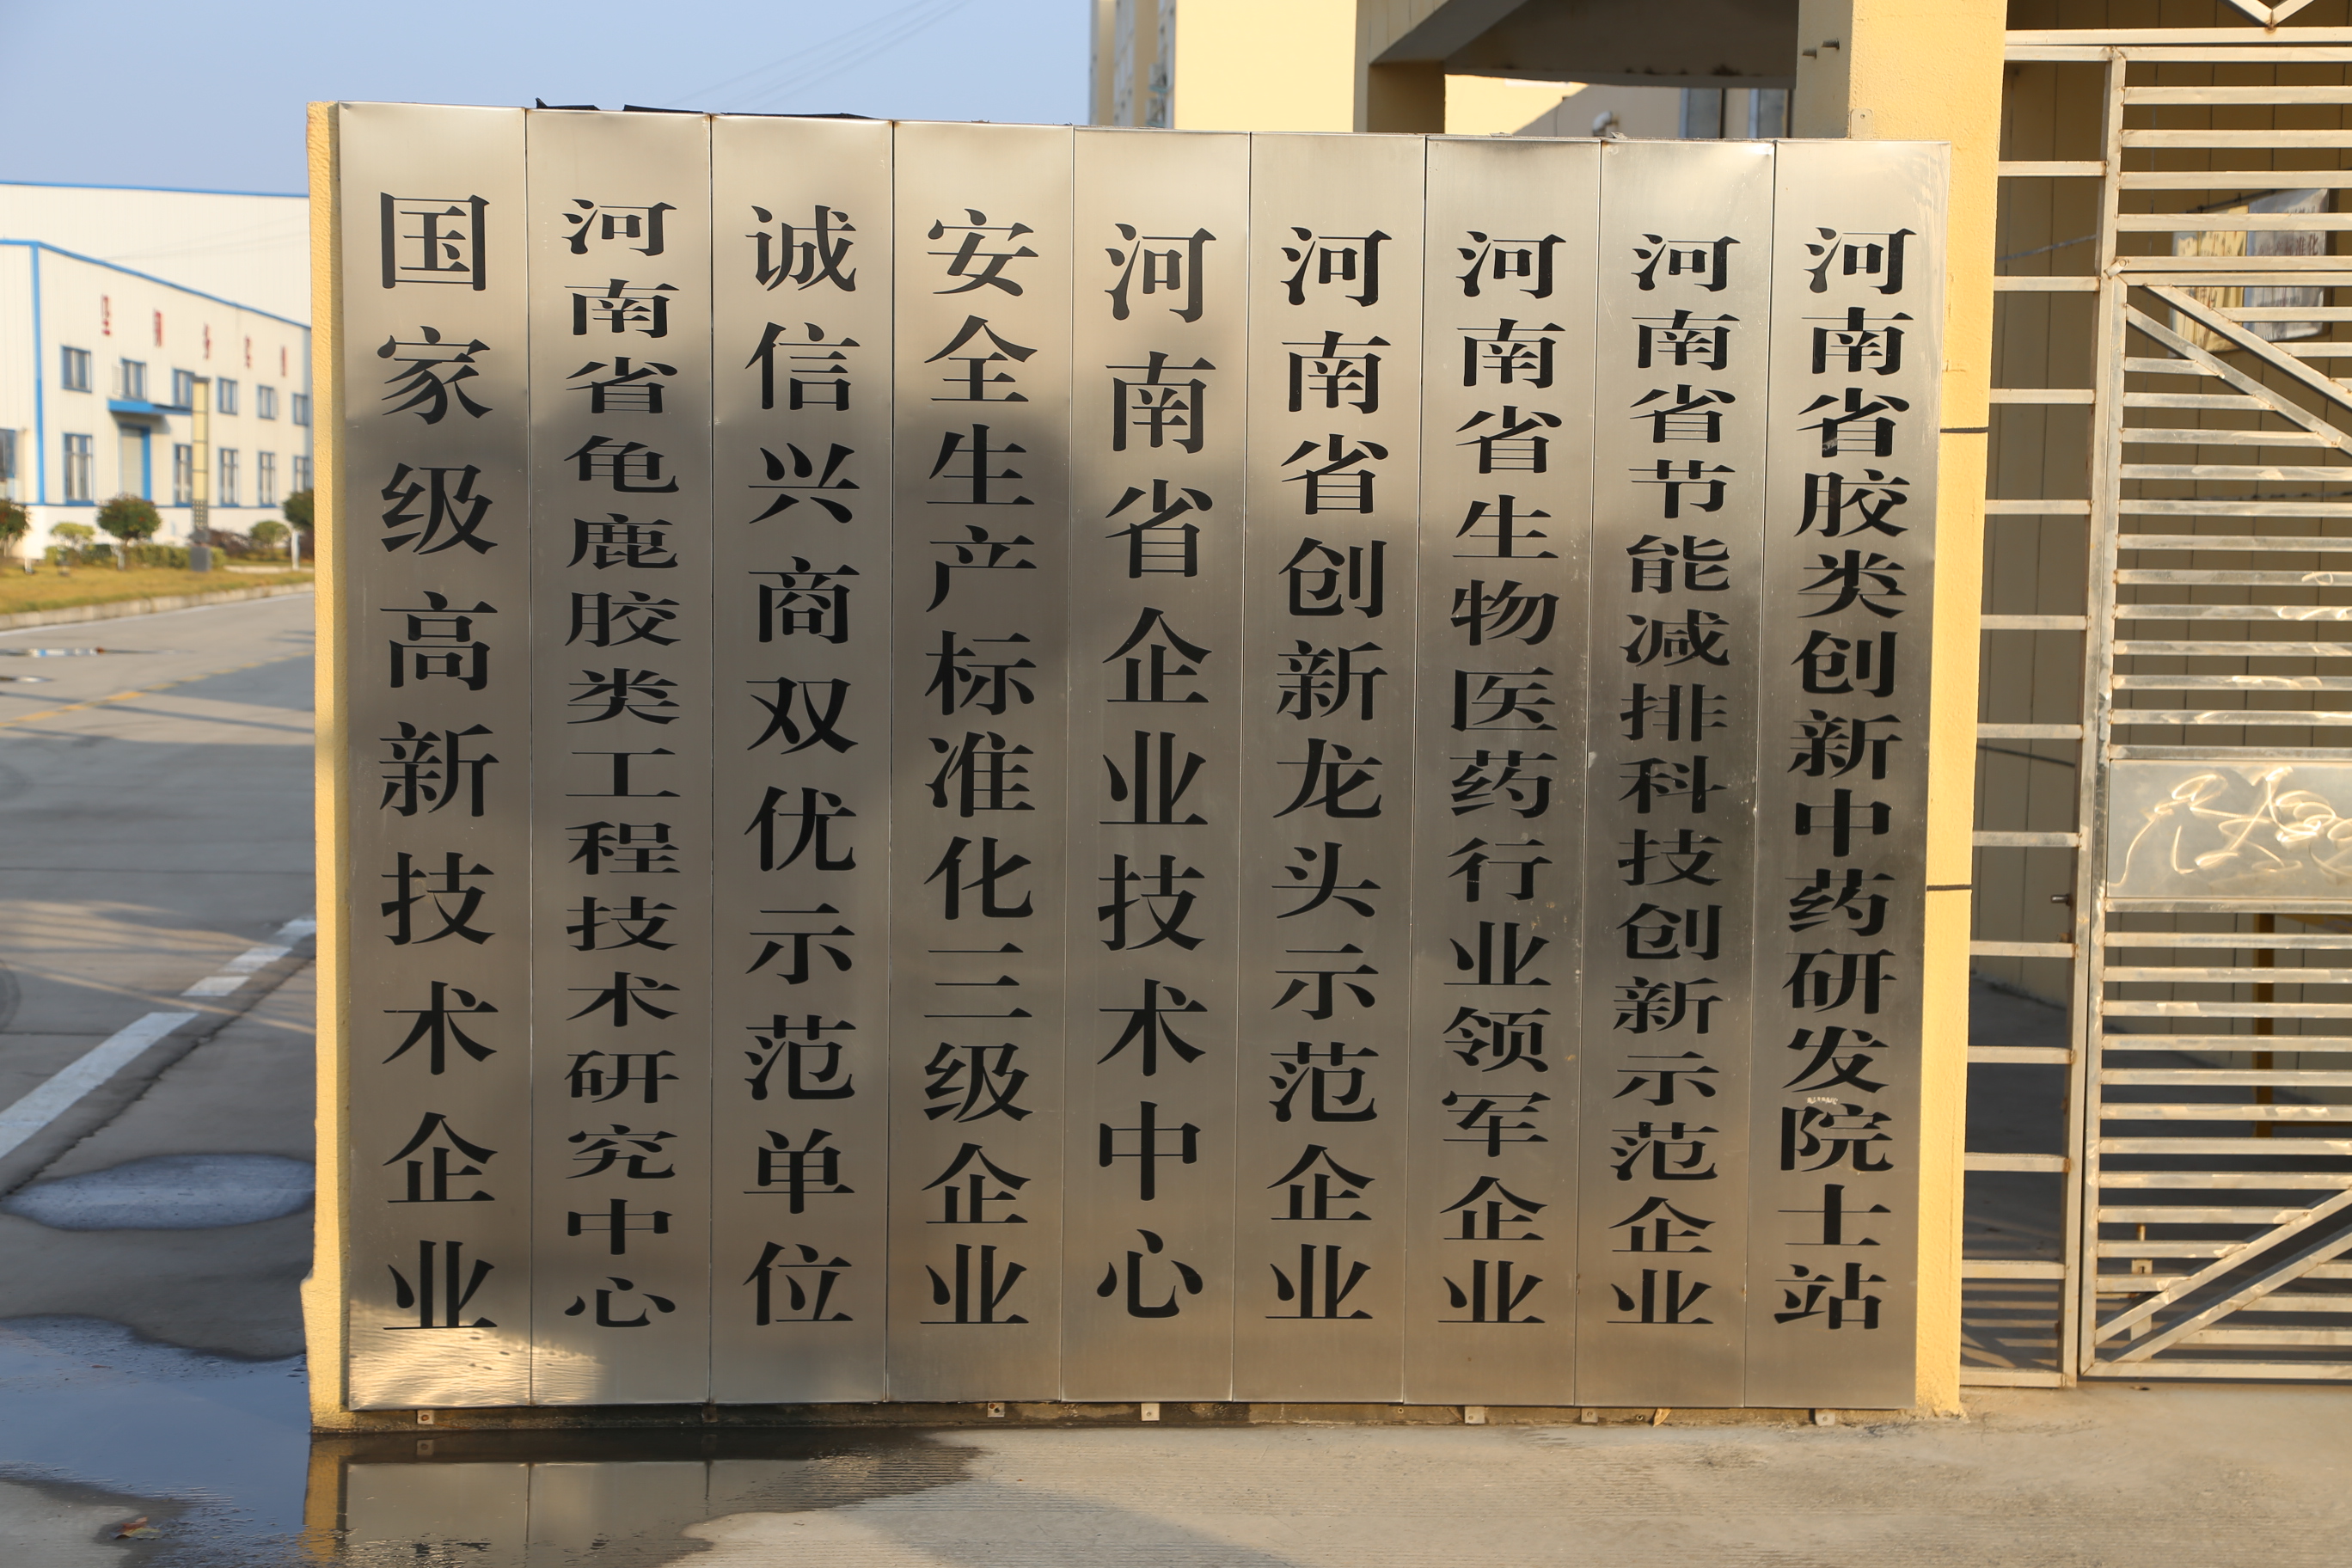 国家级高新技术企业
河南省龟鹿胶类工程技术研究中心
诚信兴商双优示范单位
安全生产标准化三级企业
河南省企业技术中心
河南省创新龙头示范企业
河南省生物医药行业领军企业
河南省节能减排科技创新示范企业
河南省胶类创新中药研发院士站